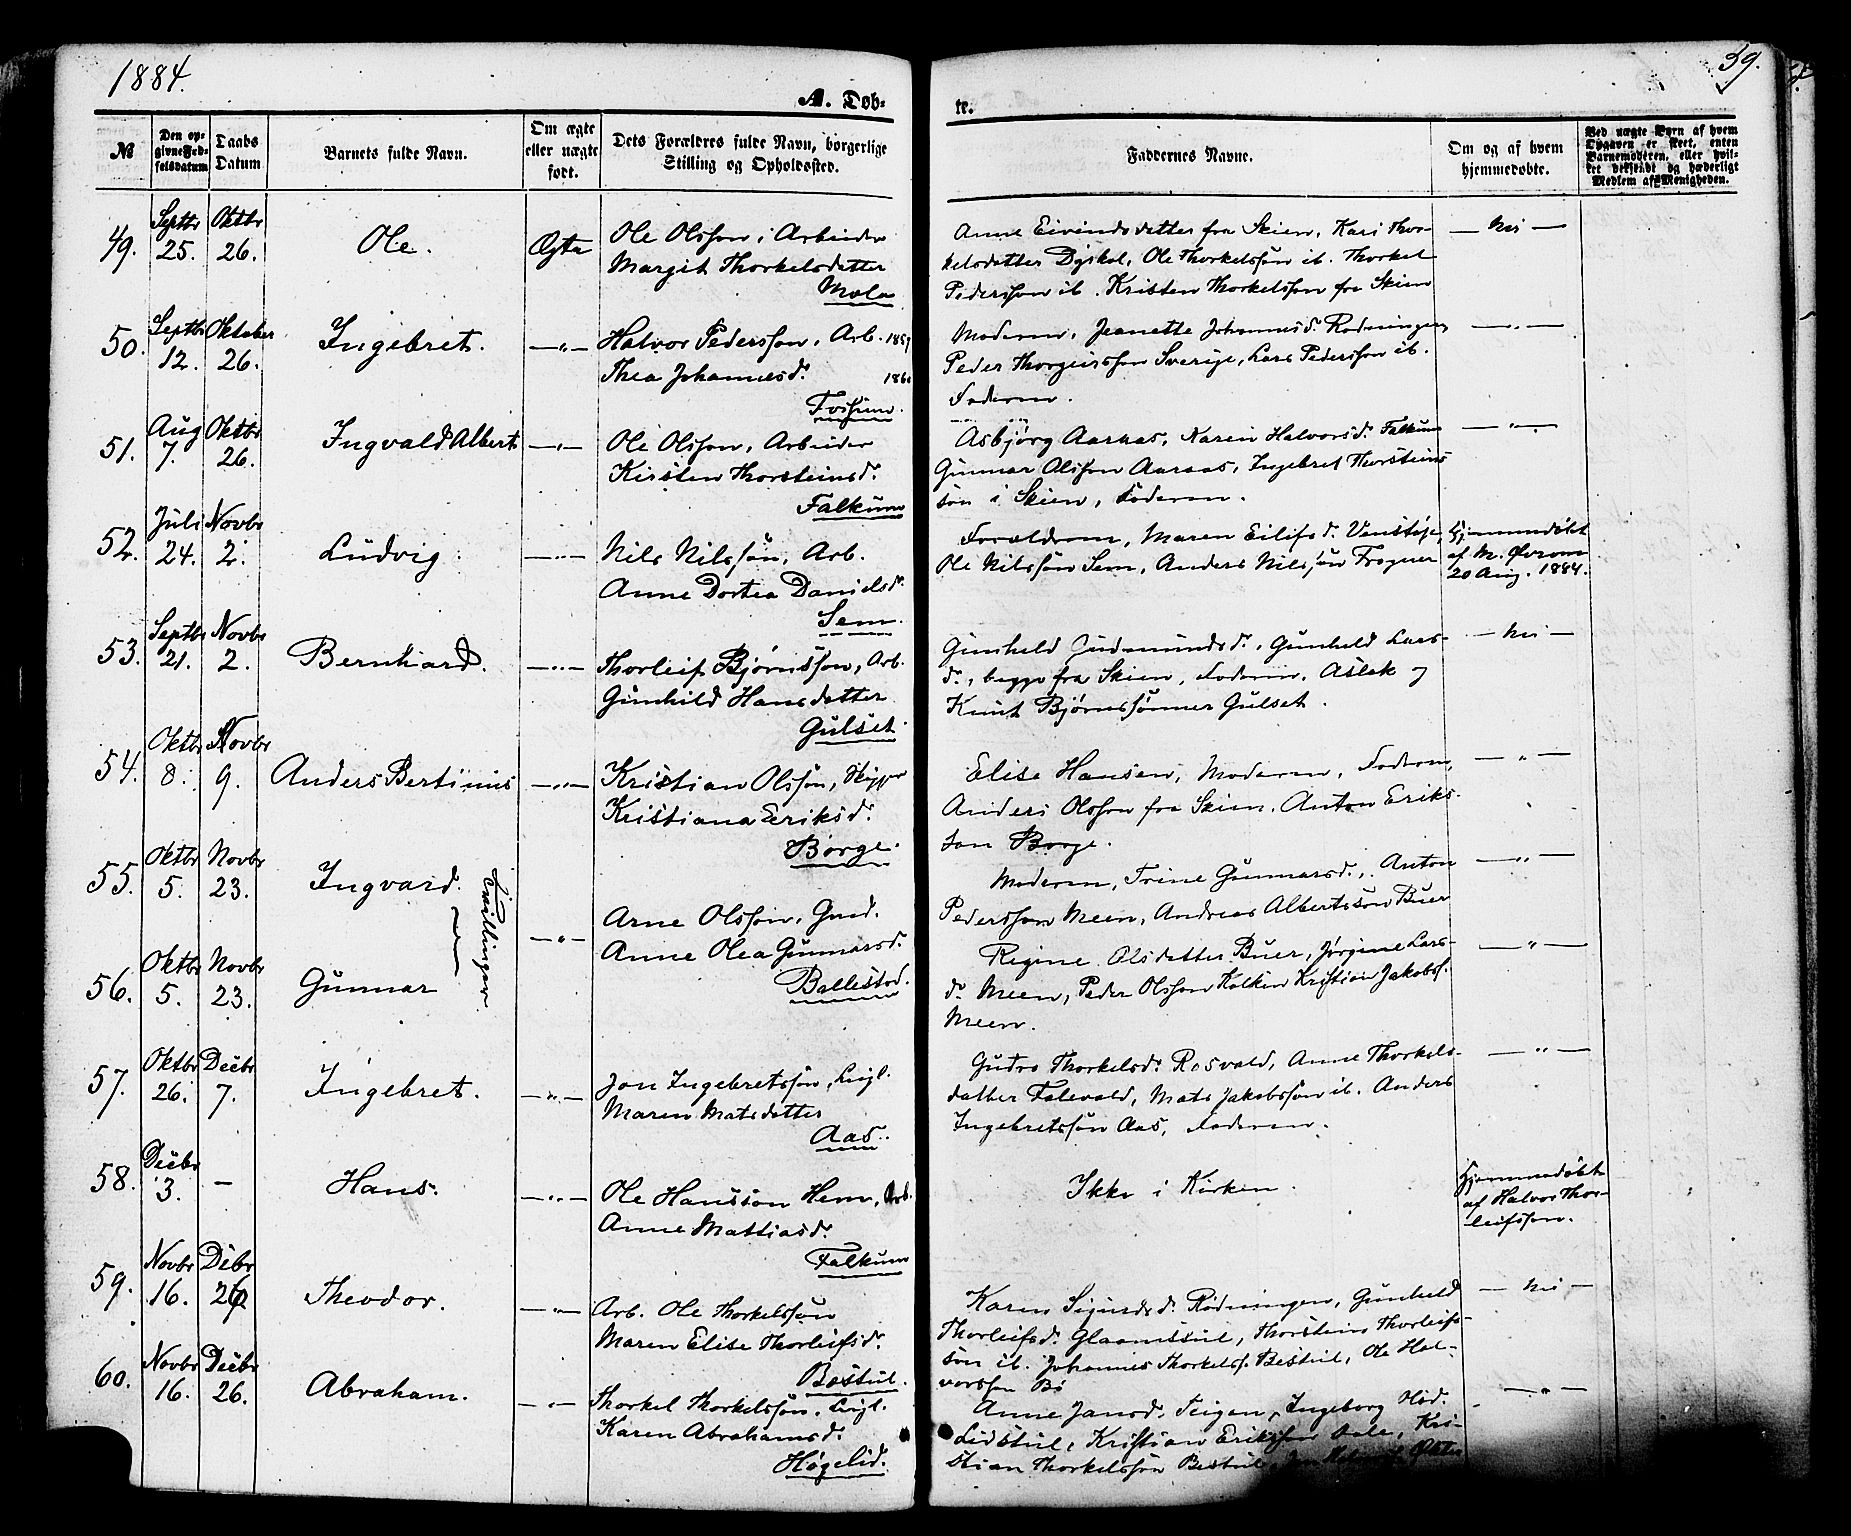 1884.
59.
A. Døb-
te.
№
Den op-
givne Fød-
selsdatum
Daabs
Datum
Barnets fulde Navn.
Om ægte
eller uægte
født.
Dets Forældres fulde Navn, borgerlige
Stilling og Opholdssted.
Faddernes Navne.
Om og af hvem
hjemmedøbte.
Ved uægte Børn af hvem
Opgaven er skeet, enten
Barnemoderen, eller hvil-
ket bekjendt og hæderligt
Medlem af Menigheden.
49.
Septbr
25.
Oktbr
26.
Ole.
Ægte
Ole Olsson, Arbeider
Margit Thorkelsdatter
Mæla
Anne Eivindsdatter fra Skien, Kari Thor-
kelsdatter Dyrkol, Ole Thorkelssøn ib. Thorkel
Pedersson ib. Kristen Thorkelsson fra Skien
— nei —
50.
Septbr
12.
Oktober
26.
Ingebret.
— " —
Halvor Pedersson, Arb. 1859
Thea Johannesd. 1860
Fossum.
Moderen, Jeanette Johannesd. Rødningen,
Peder Thorgeirsson Sverige, Lars Pedersson ib.
Faderen.
— " —
51.
Aug
7.
Oktbr
26.
Ingvald Albert
— " —
Ole Olsson, Arbeider
Kirsten Thorsteinsd.
Falkum
Asbjørg Aaraas, Karen Halvorsd. Falkum
Gunnar Olsson Aaraas, Ingebret Thorsteins
søn i Skien, Faderen.
— " —
52.
Juli
24.
Novbr
2.
Ludvig.
— " —
Nils Nilssøn, Arb.
Anne Dortea Danielsd.
Sem.
Forældrene, Maren Eilifsd. Venstøp,
Ole Nilssøn Sem, Anders Nilssøn Frogner
Hjemmedøbt
af M. Øvrom
20 Aug. 1884.
53.
Septbr
21.
Novbr
2.
Bernhard.
— " —
Thorleif Bjørnsson, Arb.
Gunhild Hansdatter
Gulset.
Gunhild Gudmundsd., Gunhild Lars-
d., begge fra Skien, Faderen, Aslak og
Knut Bjørnssønner Gulset.
— nei —
54.
Oktbr
8.
Novbr
9.
Anders Bertinius
— " —
Kristian Olsson, Skipper
Kristiana Eeriksd.
Børge.
Elise Hansen, Moderen, Faderen,
Anders Olsson fra Skien, Anton Eriks-
søn Børge.
— " —
55.
Oktbr
5.
Novbr
23.
Ingvard.
Tvillinger
— " —
Arne Olsson, Gmd.
Anne Olea Gunnarsd.
Ballestad.
Moderen, Trine Gunnarsd., Anton
Pedersson Meen, Andreas Albertssøn Buer
— " —
56.
Oktbr
5.
Novbr
23.
Gunnar
Regine Olsdatter Buer, Jørgine Lars-
d. Meen, Peder Olsson Kolken Kristian Jakobss.
Meen.
— " —
57.
Oktbr
26.
Decbr
7.
Ingebret.
— " —
Jon Ingebretssøn, Leigl.
Maren Matsdatter
Aas.
Gudro Thorkelsd. Rosvald, Anne Thorkels-
datter Falevald, Mats Jakobssøn ib. Anders
Ingebretssøn Aas, Faderen.
— " —
58.
Decbr
3.
–
Hans.
— " —
Ole Hansson Hem, Arb.
Anne Mattiasd.
Falkum
Ikke i Kirken.
Hjemmedøbt
af Halvor Thor-
leifsson.
59.
Novbr
16.
Debr
26
Theodor.
— " —
Arb. Ole Thorkelssøn
Maren Elise Thorleifsd.
Bøstul.
Karen Sigurdsd. Rødningen, Gunhild
Thorleifsd. Glaamstul, Thorstein Thorleifs-
søn ib. Johannes Thorkelss. Bestul, Ole Hal-
vorsson Bø
— nei —
60.
Novbr
16.
Decbr
26.
Abraham.
— " —
Thorkel Thorkelssøn, Leigl.
Karen Abrahamsd.
Høgelid.
Anne Jansd. Teigen, Ingeborg
Lidstul, Kristian Eriksson Dale, Kri-
stian Thorkelssøn Bestul,
— " —